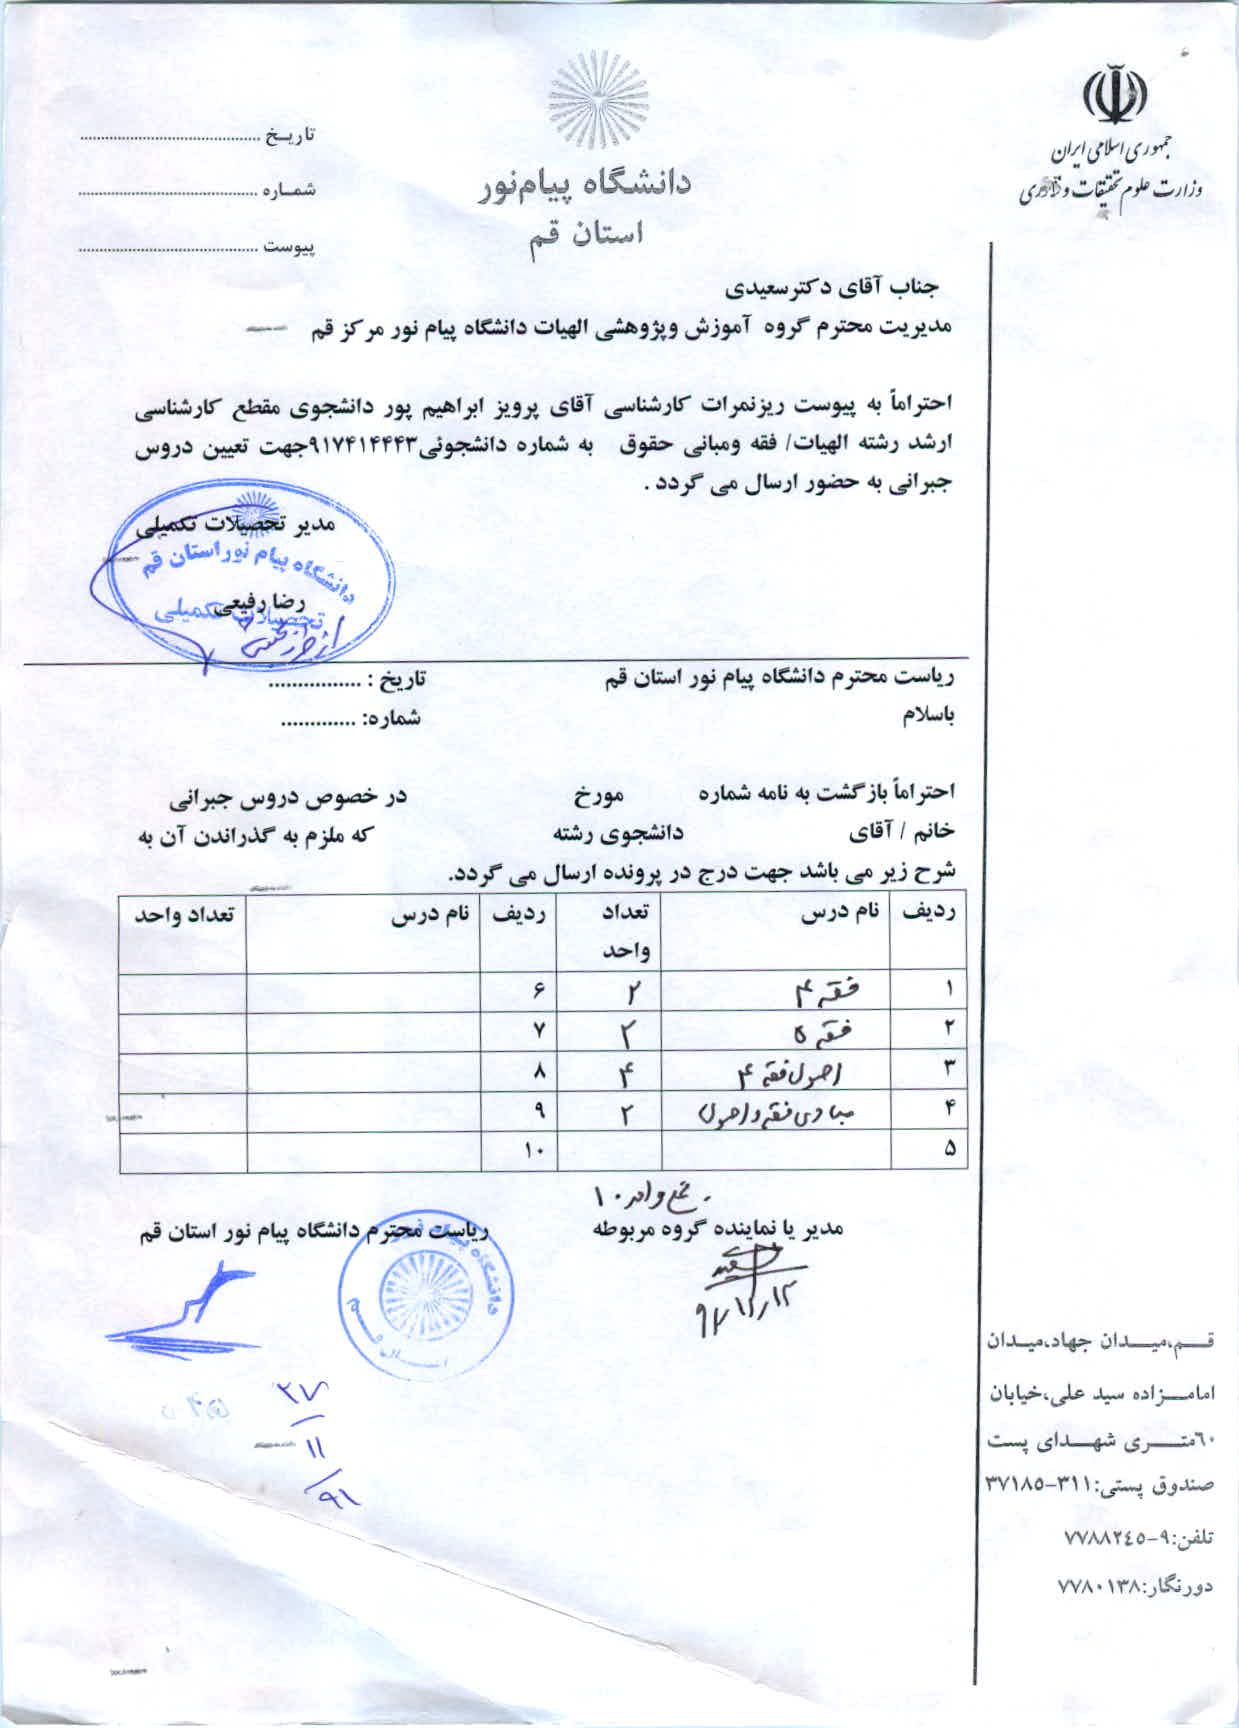 جمهوری اسلامی ایران
وزارت علوم تحقیقات و فناوری
دانشگاه پیام‌نور
استان قم
تاریخ ........................................
شماره ........................................
پیوست ........................................
جناب آقای دکترسعیدی
مدیریت محترم گروه آموزش وپژوهشی الهیات دانشگاه پیام نور مرکز قم
احتراماً به پیوست ریزنمرات کارشناسی آقای پرویز ابراهیم پور دانشجوی مقطع کارشناسی
ارشد رشته الهیات/ فقه ومبانی حقوق به شماره دانشجوئی۹۱۷۴۱۴۴۴۳جهت تعیین دروس
جبرانی به حضور ارسال می گردد .
مدیر تحصیلات تکمیلی
دانشگاه پیام نور استان قم
رضا رفیعی
تحصیلات تکمیلی
ریاست محترم دانشگاه پیام نور استان قم تاریخ : ................
باسلام شماره: .............
احتراماً بازگشت به نامه شماره مورخ در خصوص دروس جبرانی
خانم / آقای دانشجوی رشته که ملزم به گذراندن آن به
شرح زیر می باشد جهت درج در پرونده ارسال می گردد.
ردیف نام درس تعداد واحد ردیف نام درس تعداد واحد
۱ فقه ۴ ۲ ۶
۲ فقه ۵ ۲ ۷
۳ اصول فقه ۴ ۴ ۸
۴ مبادی فقه و اصول ۲ ۹
۵ ۱۰
۱۰ واحد
مدیر یا نماینده گروه مربوطه ریاست محترم دانشگاه پیام نور استان قم
۹۲/۱۲/۱۲
۲۷/۱۱/۹۲
قم،میدان جهاد،میدان
امامزاده سید علی،خیابان
٦٠متری شهدای پست
صندوق پستی:۳۱۱-۳۷۱۸۵
تلفن:۹-۷۷۸۸۲٤٥
دورنگار:۷۷۸۰۱۳۸